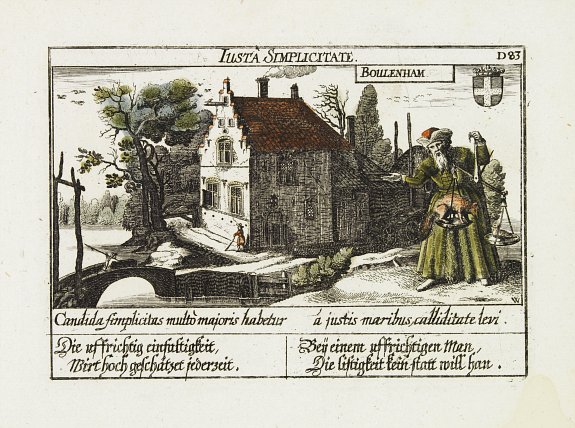 IUSTÀ SIMPLICITATE.
D 83
BOULENHAM.
W
Candida semplicitas multò majoris habetur à justis maribus, calliditate levi.
Die uffrichtig einfaltigkeit,
Wirt hoch geschätzet jederzeit.
Beÿ einem uffrichtigen Man,
Die listigkeit kein statt will han.